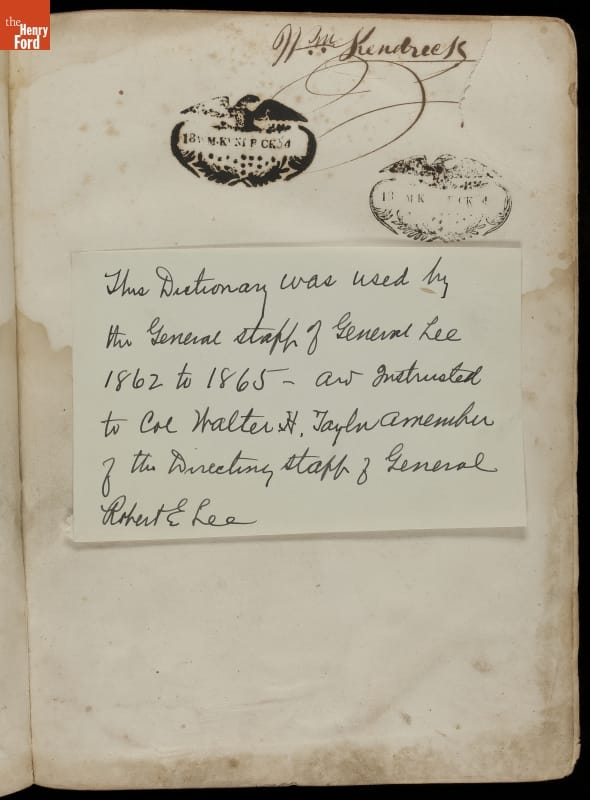 the
Henry
Ford
Wm Kendrick
18 WM. KENDRICK 54
18 M K CK 4
This Dictionary was used by
the General staff of General Lee
1862 to 1865 – and Instrusted
to Col Walter H. Taylor a member
of the Directing staff of General
Robert E Lee